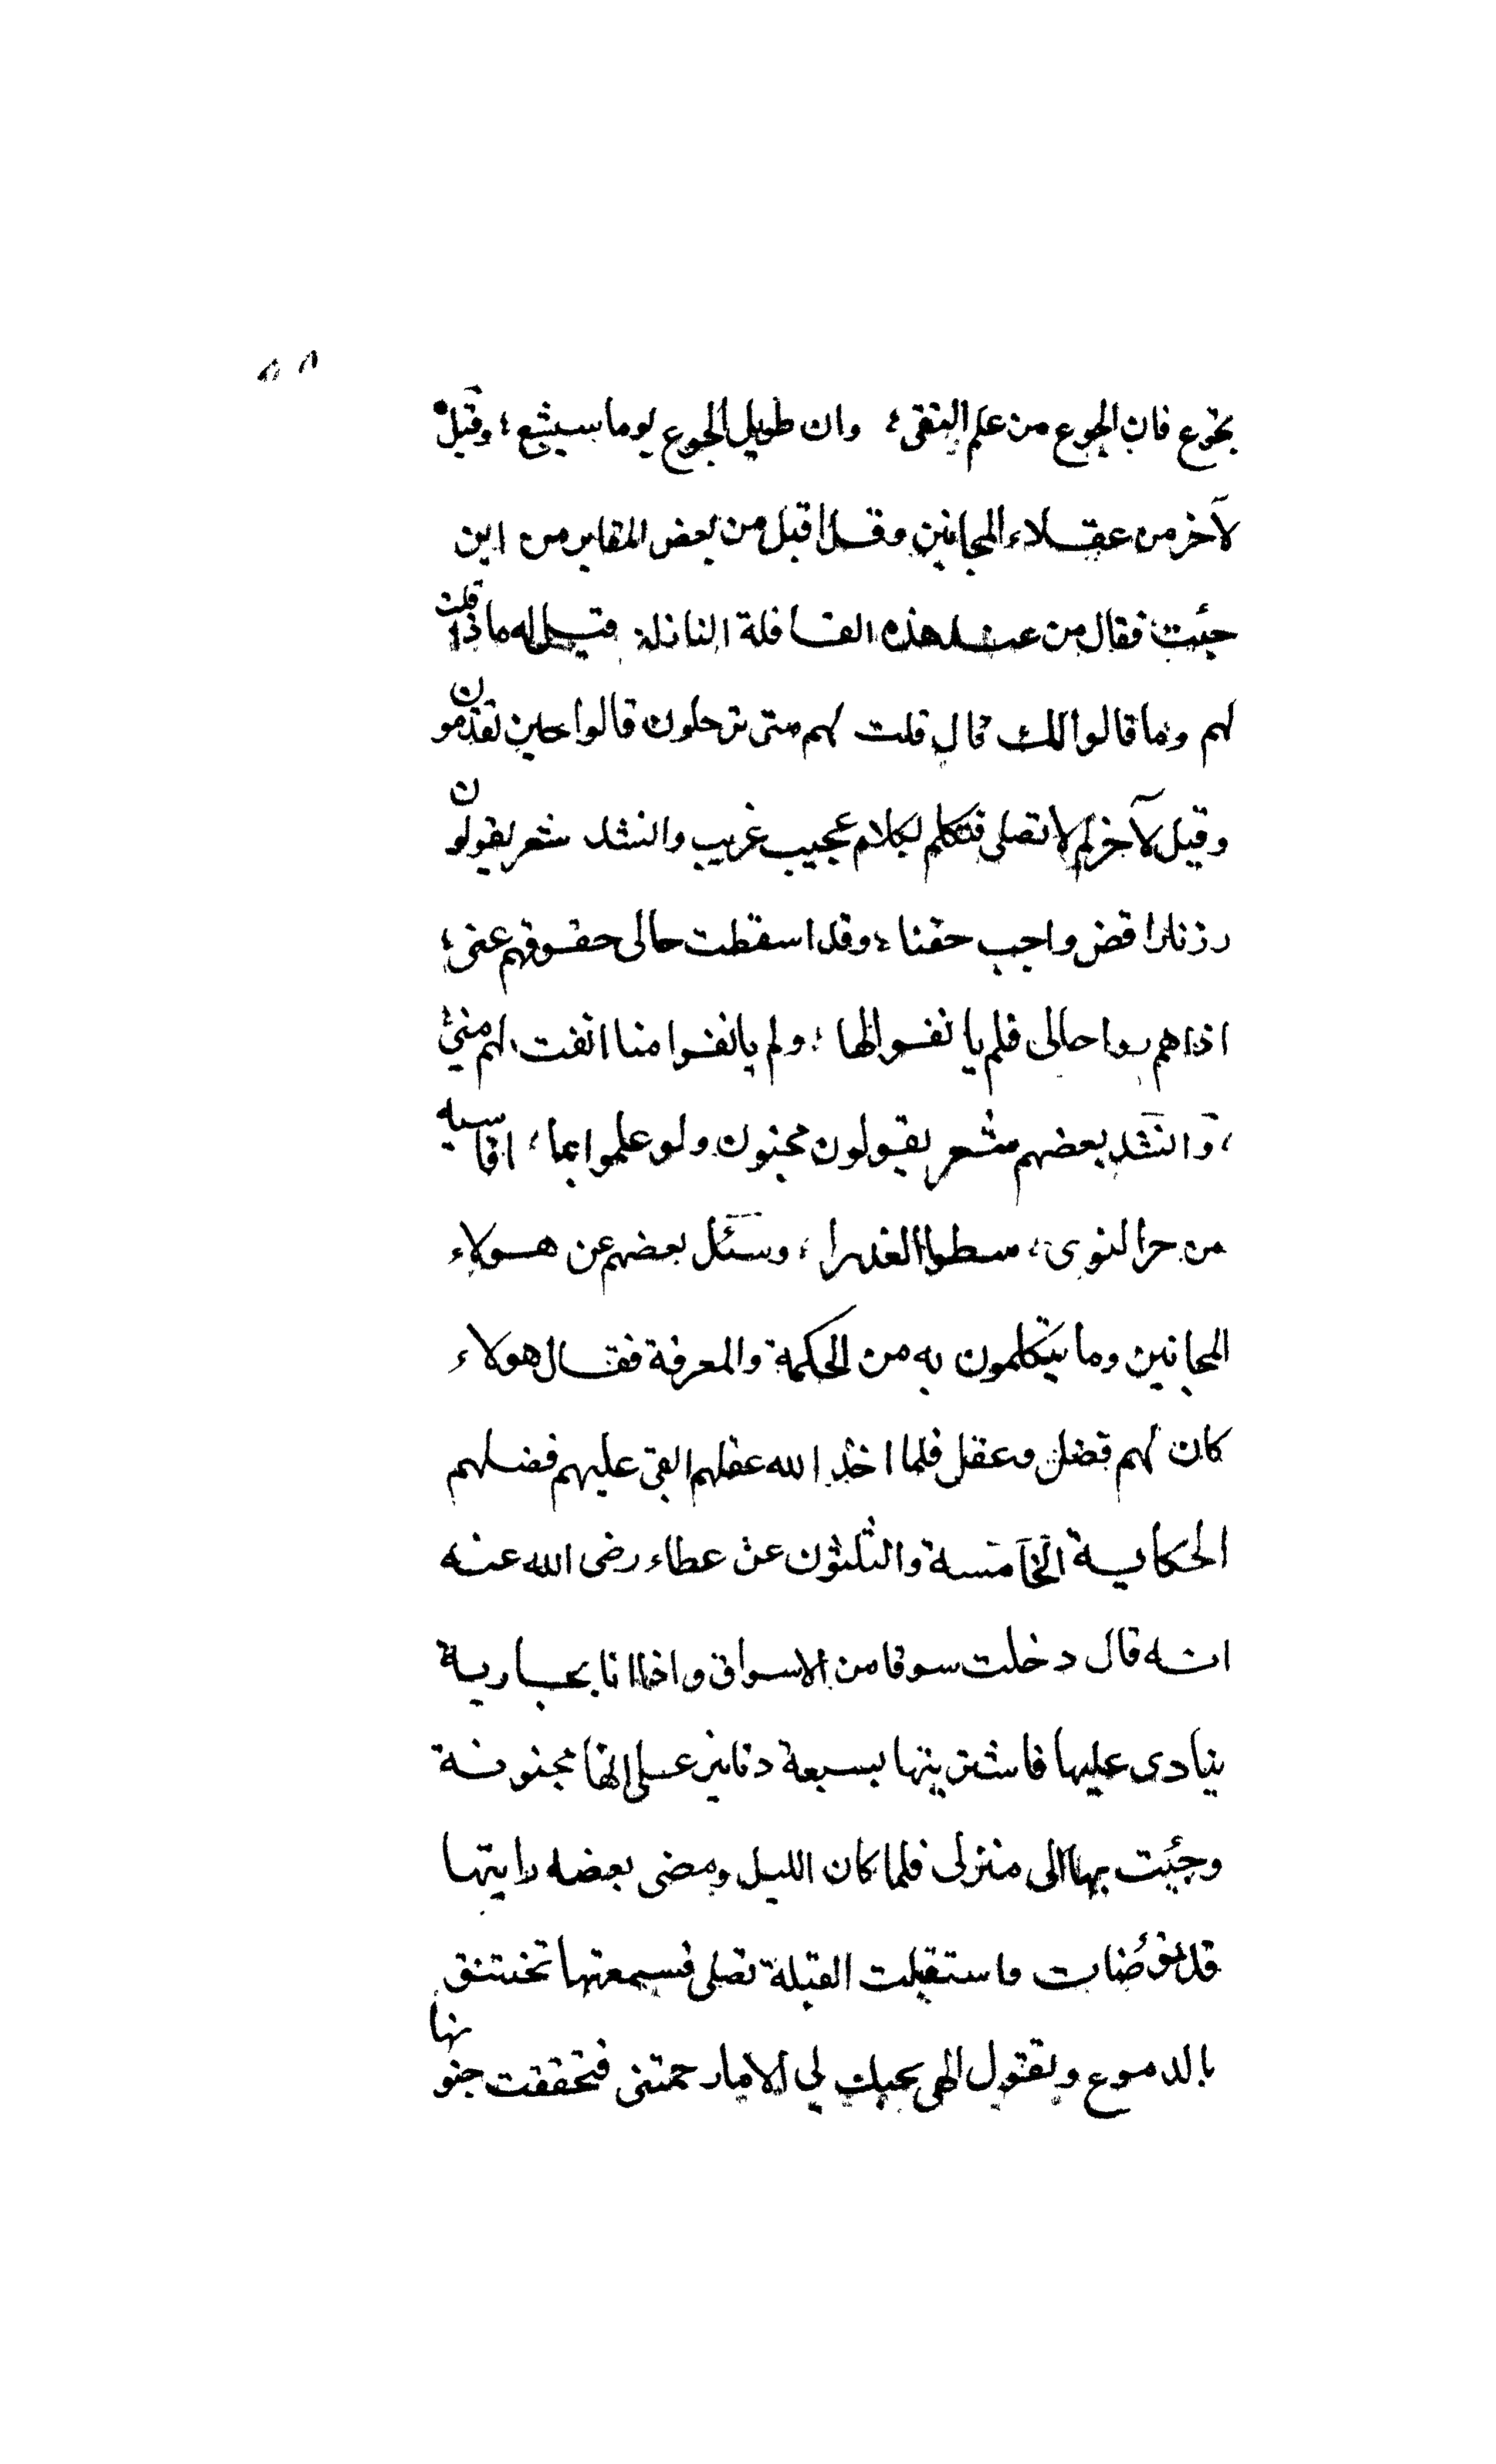 تجوع فان الجوع من علم التقى ؛ وان طويل الجوع يوما سيشبع ؛ وقيل
لآخر من عقلاء المجانين وقد اقبل من بعض المقابر من اين
جئت فقال من عند هذه القافلة النازلة فقيل له ماذا قلت
لهم وما قالوا لك قال قلت لهم متى ترحلون قالوا حين تقدمون
وقيل لآخر لم لا تصلى فتكلم بكلام عجيب غريب وانشد شعر يقولون
زرنا واقض واجب حقنا ؛ وقد اسقطت حالى حقوقهم عنى ؛
اذا هم روا حالى فلم يانفوا لها ؛ ولم يانفوا منا انفت لهم منى ؛
، وانشد بعضهم شعر يقولون مجنون ولو علموا بما ، اقاسيه
من حر النوى ، سطوا العذرا ، وسئل بعضهم عن هولاء
المجانين وما يتكلمون به من الحكمة والمعرفة فقال هولاء
كان لهم فضل وعقل فلما اخذ الله عقلهم ابقى عليهم فضلهم
الحكاية الخامسة والثلثون عن عطاء رضى الله عنه
انه قال دخلت سوقا من الاسواق واذا انا بجارية
ينادى عليها فاشتريتها بسبعة دنانير على انها مجنونة
وجئت بها الى منزلى فلما كان الليل ومضى بعضه رايتها
قد توضات واستقبلت القبلة تصلى فسمعتها تختنق
بالدموع وتقول الهى بحبك لي الا ما رحمتنى فتحققت جنونها